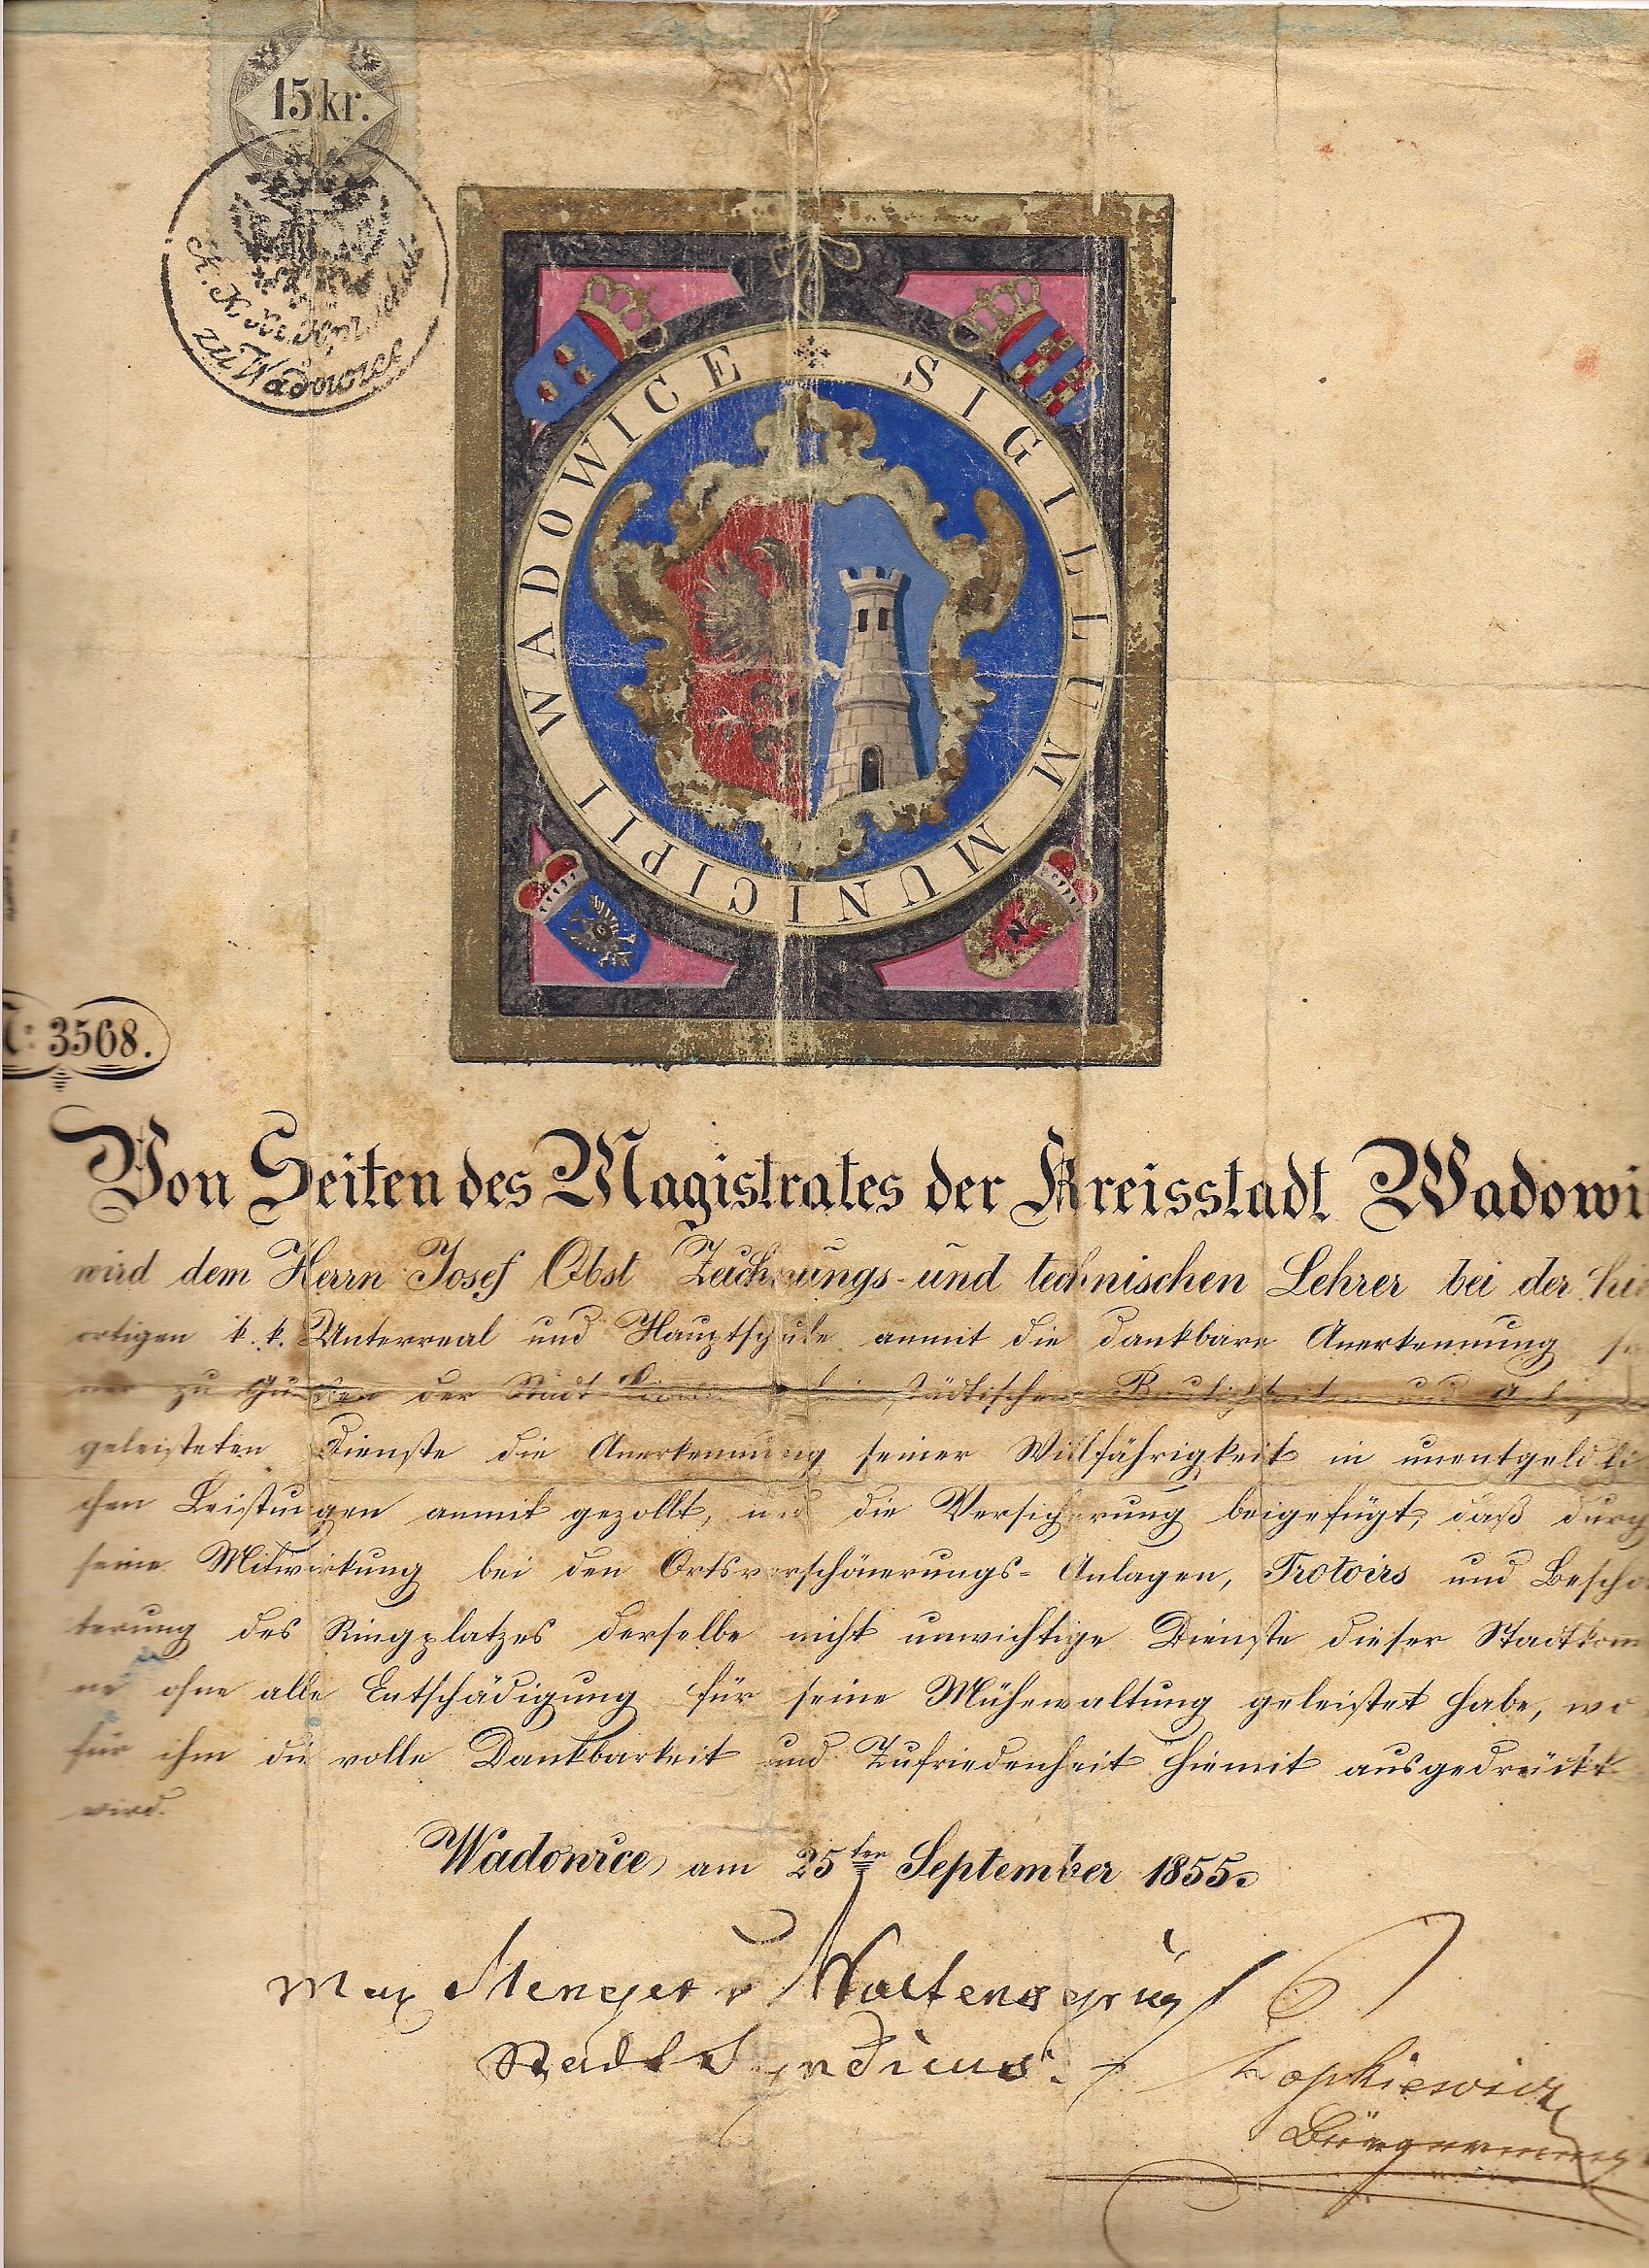 15 kr.
K. K.
zu Wadowice
SIGILLUM MUNICIPII WADOWICE
: 3568.
Von Seiten des Magistrates der Kreisstadt Wadowi
wird dem Herrn Josef Obst Zeichnungs- und technischen Lehrer bei der hie
ortigen k. k. Unterreal und Hauptschule anmit die dankbare Anerkennung se
ner zu Gunsten der Stadt städtischen
geleisteten Dienste die Anerkennung seiner Willfährigkeit in unentgeldli
chen Leistungen anmit gezollt, und die Versicherung beigefügt, daß durch
seine Mitwirkung bei den Ortsverschönerungs- Anlagen, Trotoirs und Bescho
terung des Ringplatzes derselbe nicht unwichtige Dienste dieser Stadtkom
ne ohne alle Entschädigung für seine Mühewaltung geleistet habe, wo
für ihm die volle Dankbarkeit und Zufriedenheit hiemit ausgedrückt
wird.
Wadowice am 25ten September 1855.
Max Stenger v
Stadt Syndicus.